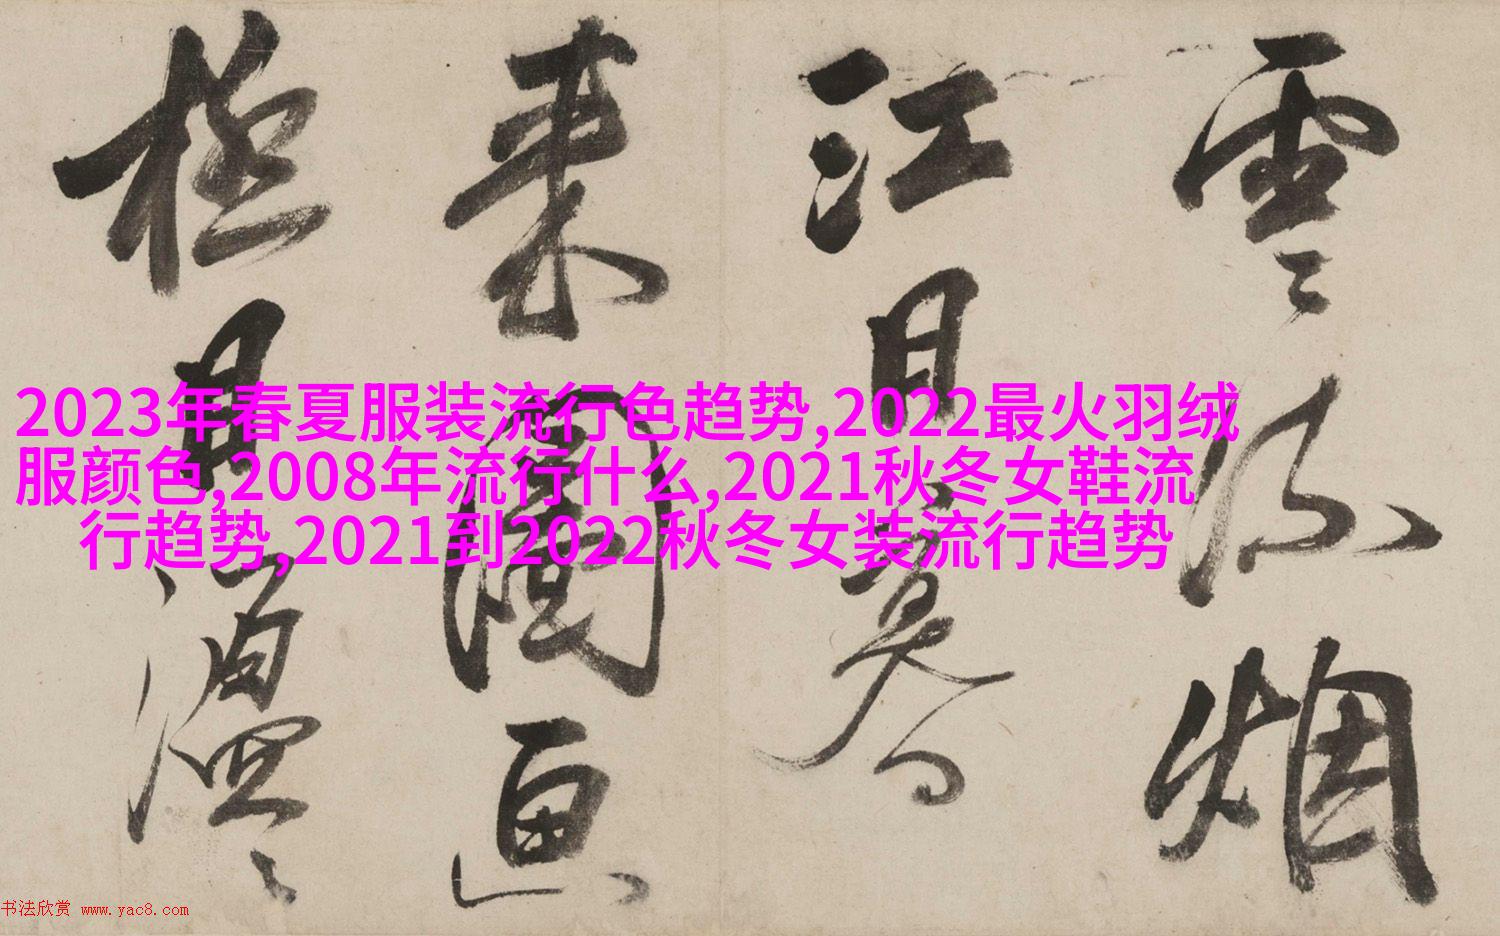 2023年春夏服装流行色趋势,2022最火羽绒
服颜色,2008年流行什么,2021秋冬女鞋流
行趋势,2021到2022秋冬女装流行趋势
雲烟
江日暮
来圖画
極目漫
书法欣赏 www.yac8.com